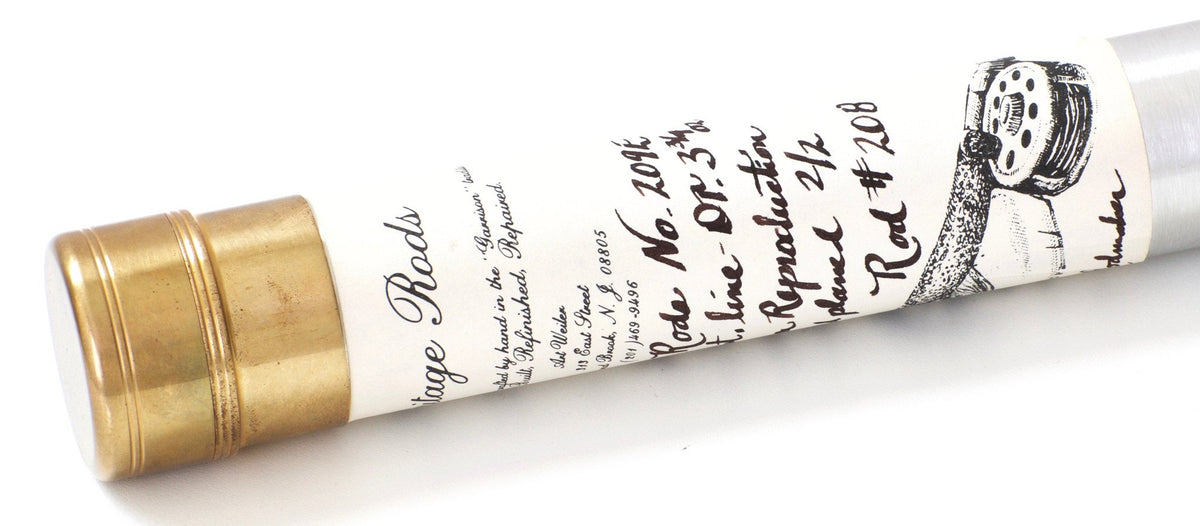 tage Rods
fted by hand in the "Garrison"
uilt, Refinished, Repaired.
Art Weiler
313 East Street
d Brook, N. J. 08805
(201) 469-9496
Rods No. 209E
t, line - DT. 3 3/4
Reproduction
planed 2/2
Rod # 208
odmaker